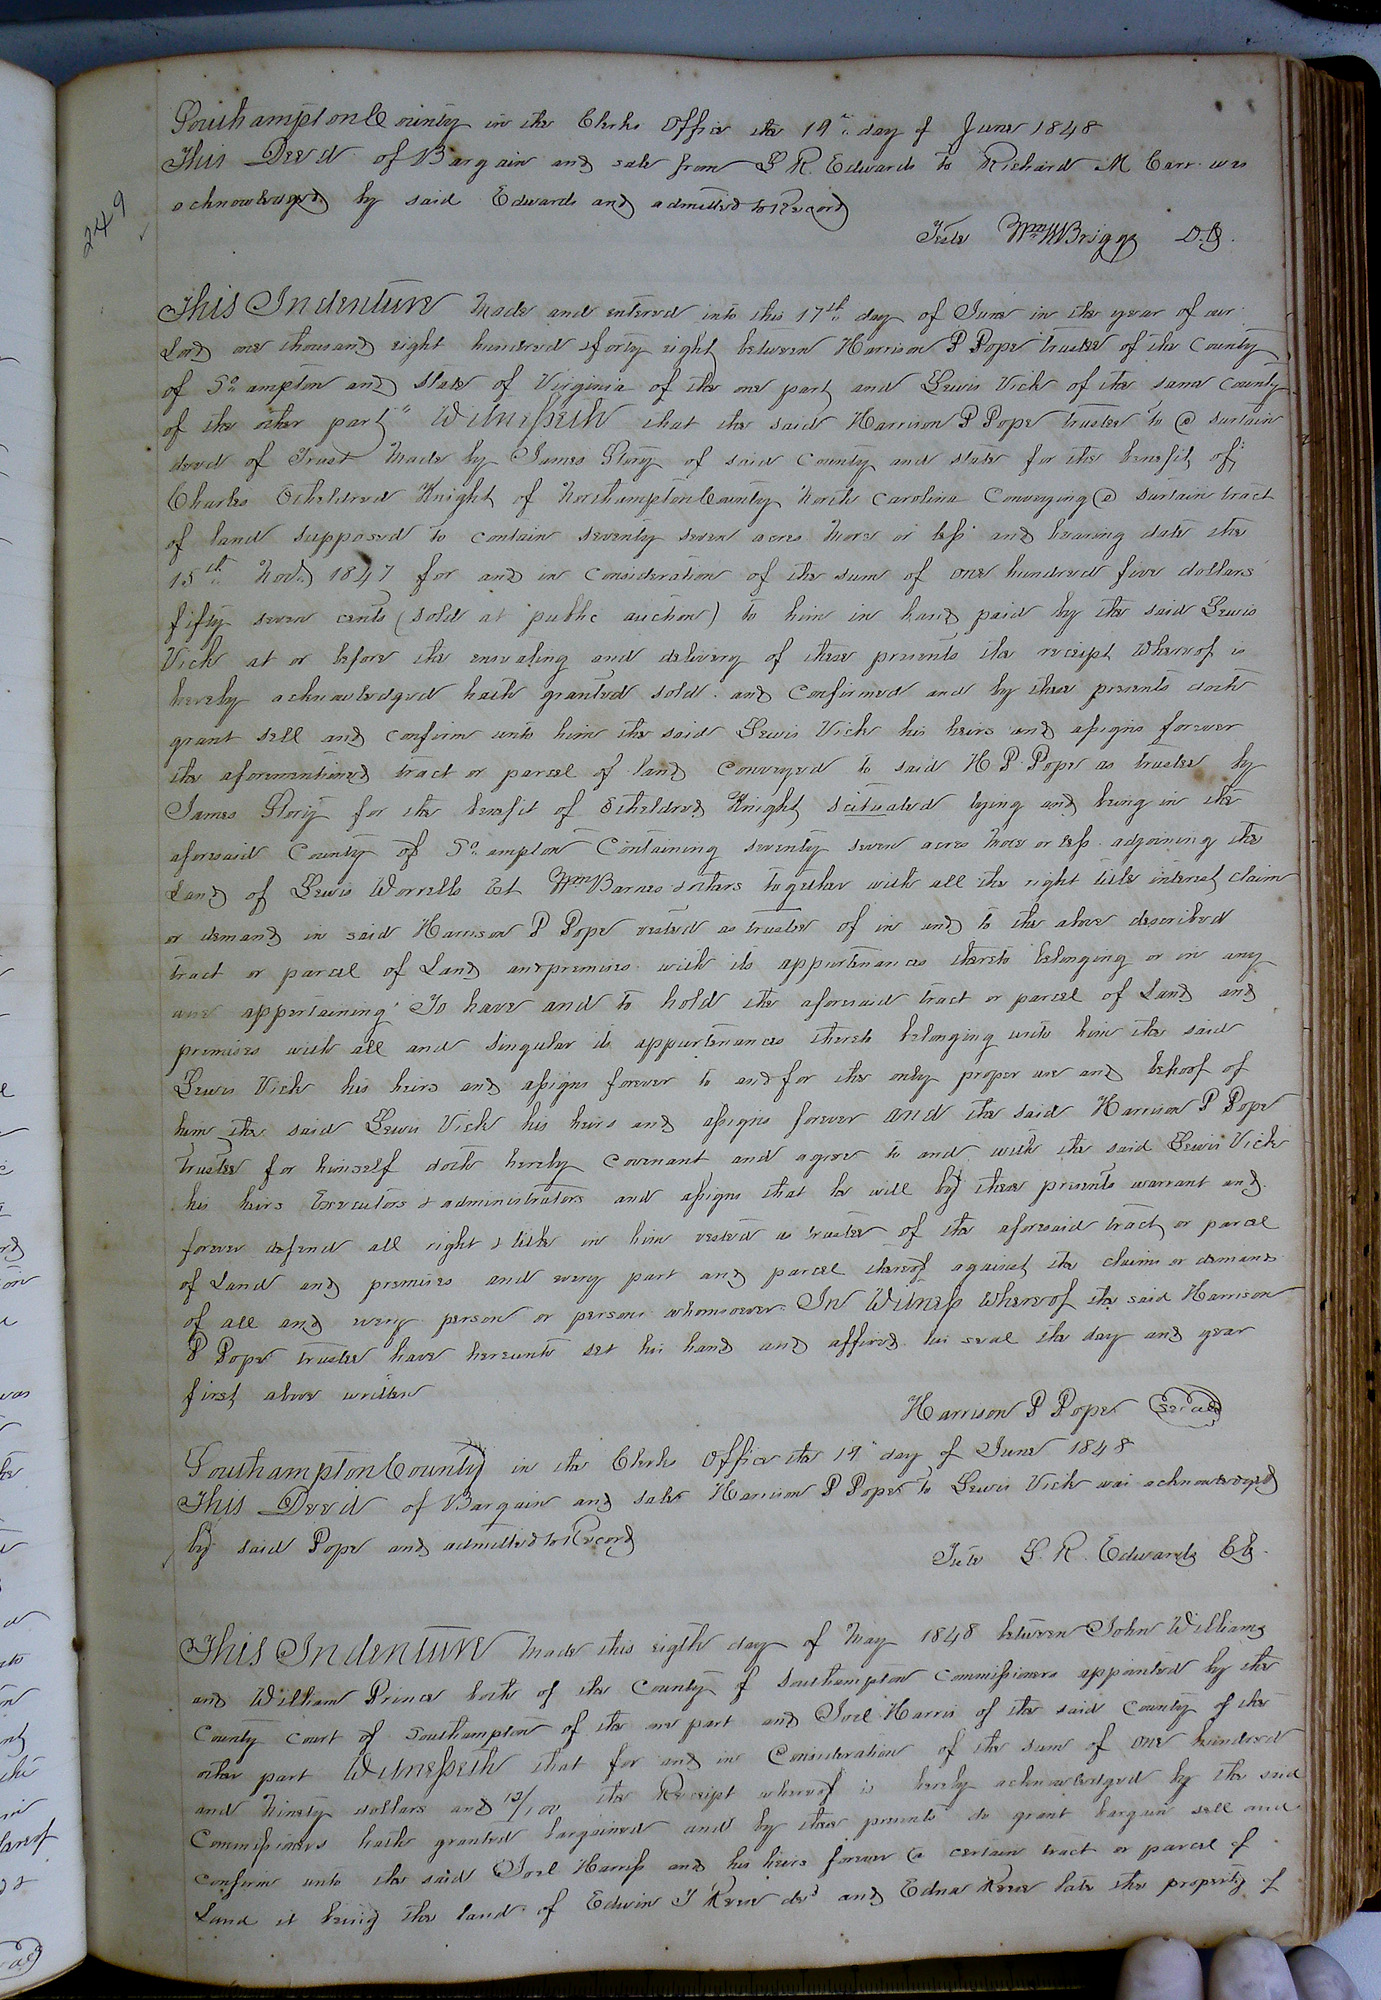 249
Southampton County in the Clerks Office the 19th day of June 1848
This Deed of Bargain and sale from L R. Edwards to Richard M Carr was
acknowledged by said Edwards and admitted to Record
Teste Wm W Briggs D.C.
This Indenture Made and entered into this 17th day of June in the year of our
Lord one thousand eight hundred & forty eight between Harrison P Pope trustee of the County
of So. ampton and State of Virginia of the one part and Lewis Vick of the same County
of the other part" Witnesseth that the said Harrison P Pope trustee to @ surtain
deed of Trust Made by James Story of said County and state for the benefit of
Charles Etheldred Knight of Northampton County North Carolina Conveying @ surtain tract
of land supposed to contain seventy seven acres More or less and bearing date the
15th Novr. 1847 for and in Consideration of the sum of one hundred five dollars
fifty seven cents (sold at public auction) to him in hand paid by the said Lewis
Vick at or before the ensealing and delivery of these presents the receipt whereof is
hereby acknowledged hath granted sold and Confirmed and by these presents doth
grant sell and confirm unto him the said Lewis Vick his heirs and assigns forever
the aforementioned tract or parcel of land Conveyed to said H. P. Pope as trustee by
James Story for the benefit of Etheldred Knight scituated lying and being in the
aforesaid County of So. ampton Containing seventy seven acres More or less adjoining the
Land of Lewis Worrells Est Wm Barnes & others together with all the right title interest claim
or demand in said Harrison P Pope vested as trustee of in and to the above described
tract or parcel of Land and premises with its appurtenances thereto belonging or in any
wise appertaining To have and to hold the aforesaid tract or parcel of Land and
premises with all and Singular its appurtenances thereto belonging unto him the said
Lewis Vick his heirs and assigns forever to and for the only proper use and behoof of
him the said Lewis Vick his heirs and assigns forever and the said Harrison P Pope
trustee for himself doth hereby Covenant and agree to and with the said Lewis Vick
his heirs Executors & administrators and assigns that he will by these presents warrant and
forever defend all right & title in him vested as trustee of the aforesaid tract or parcel
of Land and premises and every part and parcel thereof against the claims or demands
of all and every person or persons whomsoever In Witness whereof the said Harrison
P Pope trustee have hereunto set his hand and affixed his seal the day and year
first above written
Harrison P Pope Seal
Southampton County in the Clerks Office the 19th day of June 1848
This Deed of Bargain and sale Harrison P Pope to Lewis Vick was acknowledged
by said Pope and admitted to Record
Teste L. R. Edwards Clk.
This Indenture Made this eigth day of May 1848 between John Williams
and William Prince both of the County of Southampton Commissioners appointed by the
County Court of Southampton of the one part and Joel Harris of the said County of the
other part Witnesseth that for and in Consideration of the sum of one hundred
and Ninety dollars and 12/100 the Receipt whereof is hereby acknowledged by the said
Commissioners hath granted bargained and by these presents do grant bargain sell and
confirm unto the said Joel Harriss and his heirs forever @ certain tract or parcel of
Land it being the land of Edwin T Reese decd and Edna Reese late the property of